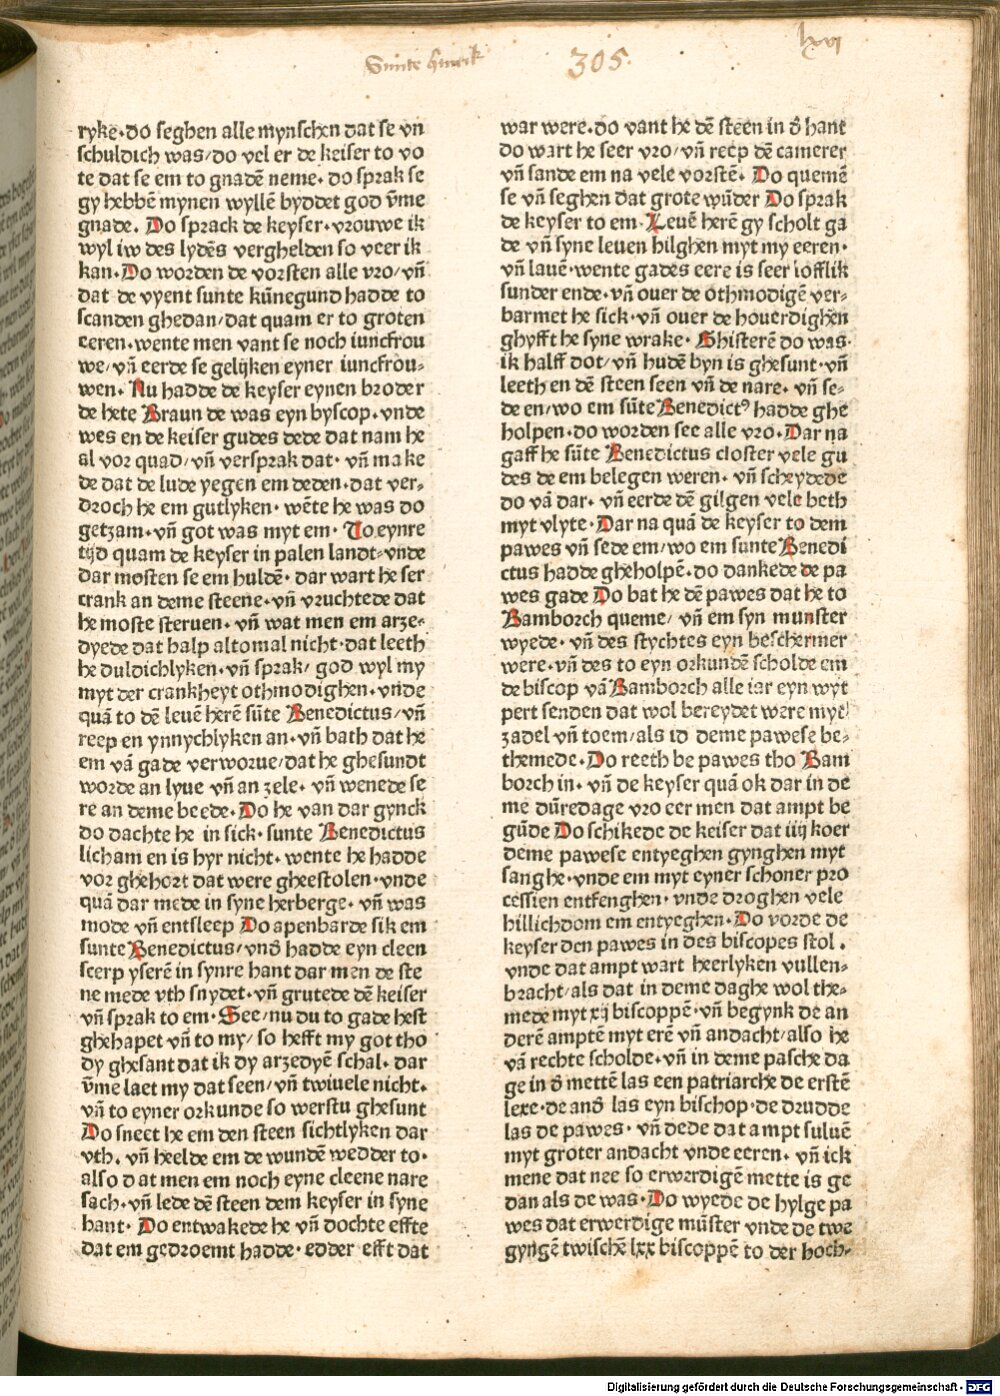 Sunte hinrik 305. lxvi
ryke·do seghen alle mynschen dat se vn
schuldich was/do vel er de keiser to vo
te dat se em to gnadē neme·do sprak ſe
gy hebbē mynen wyllē byddet god v̄me
gnade. Do sprack de keyser·vrouwe ik
wyl iw des lydēs verghelden so veer ik
kan·Do worden de vorsten alle vro/vn̄
dat de vyent sunte kūnegund hadde to
scanden ghedan/dat quam er to groten
eeren·wente men vant se noch iuncfrou
we/vn̄ eerde se gelijken eyner iuncfrou-
wen· Nu hadde de keyser eynen broder
de hete Braun de was eyn byscop·vnde
wes en de keiser gudes dede dat nam he
al vor quad/vn̄ versprak dat·vn̄ make
de dat de lude yegen em deden·dat ver-
droch he em gutlyken·wēte he was do
getzam·vn̄ got was myt em· To eynre
tijd quam de keyser in palen landt·vnde
dar mosten se em huldē· dar wart he ser
crank an deme steene·vn̄ vruchtede dat
he moste steruen·vn̄ wat men em arze-
dyede dat halp altomal nicht·dat leeth
he duldichlyken·vn̄ sprak/ god wyl my
myt der crankheyt othmodighen·vnde
quā to dē leuē herē sūte Benedictus/vn̄
reep en ynnychlyken an·vn̄ bath dat he
em vā gade verworue/dat he ghesundt
worde an lyue vn̄ an zele·vn̄ wenede se
re an deme beede·Do he van dar gynck
do dachte he in sick·sunte Benedictus
licham en is hyr nicht·wente he hadde
vor ghehort dat were gheestolen·vnde
quā dar mede in syne herberge·vn̄ was
mode vn̄ entsleep Do apenbarde sik em
sunte Benedictus/vnd̄ hadde eyn cleen
scerp yserē in synre hant dar men de ste
ne mede vth snydet·vn̄ grutede dē keiser
vn̄ sprak to em·See/nu du to gade hest
ghehapet vn̄ to my/ so hefft my got tho
dy ghesant dat ik dy arzedyē schal·dar
v̄me laet my dat seen/vn̄ twiuele nicht·
vn̄ to eyner orkunde so werstu ghesunt
Do sneet he em den steen sichtlyken dar
vth. vn̄ heelde em de wundē wedder to·
also dat men em noch eyne cleene nare
sach·vn̄ lede dē steen dem keyser in syne
hant· Do entwakede he vn̄ dochte effte
dat em gedroemt hadde·edder efft dat
war were·do vant he dē steen in d̄ hant
do wart he seer vro/vn̄ reep dē camerer
vn̄ sande em na vele vorstē· Do quemē
se vn̄ seghen dat grote wūder Do sprak
de keyser to em·Leuē herē gy scholt ga
de vn̄ syne leuen hilghen myt my eeren·
vn̄ lauē·wente gades eere is seer lofflik
sunder ende·vn̄ ouer de othmodigē ver-
barmet he sick·vn̄ ouer de houerdighen
ghyfft he syne wrake·Ghisterē do was·
ik halff dot/vn̄ hudē byn is ghesunt·vn̄
leeth en dē steen seen vn̄ de nare·vn̄ se-
de en/wo em sūte Benedictꝰ hadde ghe
holpen·do worden see alle vro·Dar na
gaff he sūte Benedictus closter vele gu
des de em belegen weren·vn̄ scheydede
do vā dar·vn̄ eerde dē gilgen vele beth
myt vlyte·Dar na quā de keyser to dem
pawes vn̄ sede em/wo em sunte Benedi
ctus hadde gheholpē·do dankede de pa
wes gade Do bat he dē pawes dat he to
Bamborch queme/vn̄ em syn munster
wyede·vn̄ des stychtes eyn beschermer
were·vn̄ des to eyn orkundē scholde em
de biscop vā Bamborch alle iar eyn wyt
pert senden dat wol bereydet were myt
zadel vn̄ toem/als id deme pawese be-
themede·Do reeth be pawes tho Bam
borch in·vn̄ de keyser quā ok dar in de
me dūredage vro eer men dat ampt be
gūde Do schikede de keiser dat iiij koer
deme pawese entyeghen gynghen myt
sanghe·vnde em myt eyner schoner pro
cessien entfenghen·vnde droghen vele
hillichdom em entyeghen·Do vorde de
keyser den pawes in des biscopes stol.
vnde dat ampt wart heerlyken vullen-
bracht/als dat in deme daghe wol the-
mede myt xij biscoppē·vn̄ begynk de an
derē amptē myt erē vn̄ andacht/also he
vā rechte scholde·vn̄ in deme pasche da
ge in d̄ mettē las een patriarche de erstē
lexe·de and̄ las eyn bischop·de drudde
las de pawes·vn̄ dede dat ampt suluē
myt groter andacht vnde eeren·vn̄ ick
mene dat nee so erwerdigē mette is ge
dan als de was·Do wyede de hylge pa
wes dat erwerdige mūster vnde de twe
gyngē twischē lxx biscoppē to der hoch-
Digitalisierung gefördert durch die Deutsche Forschungsgemeinschaft - DFG